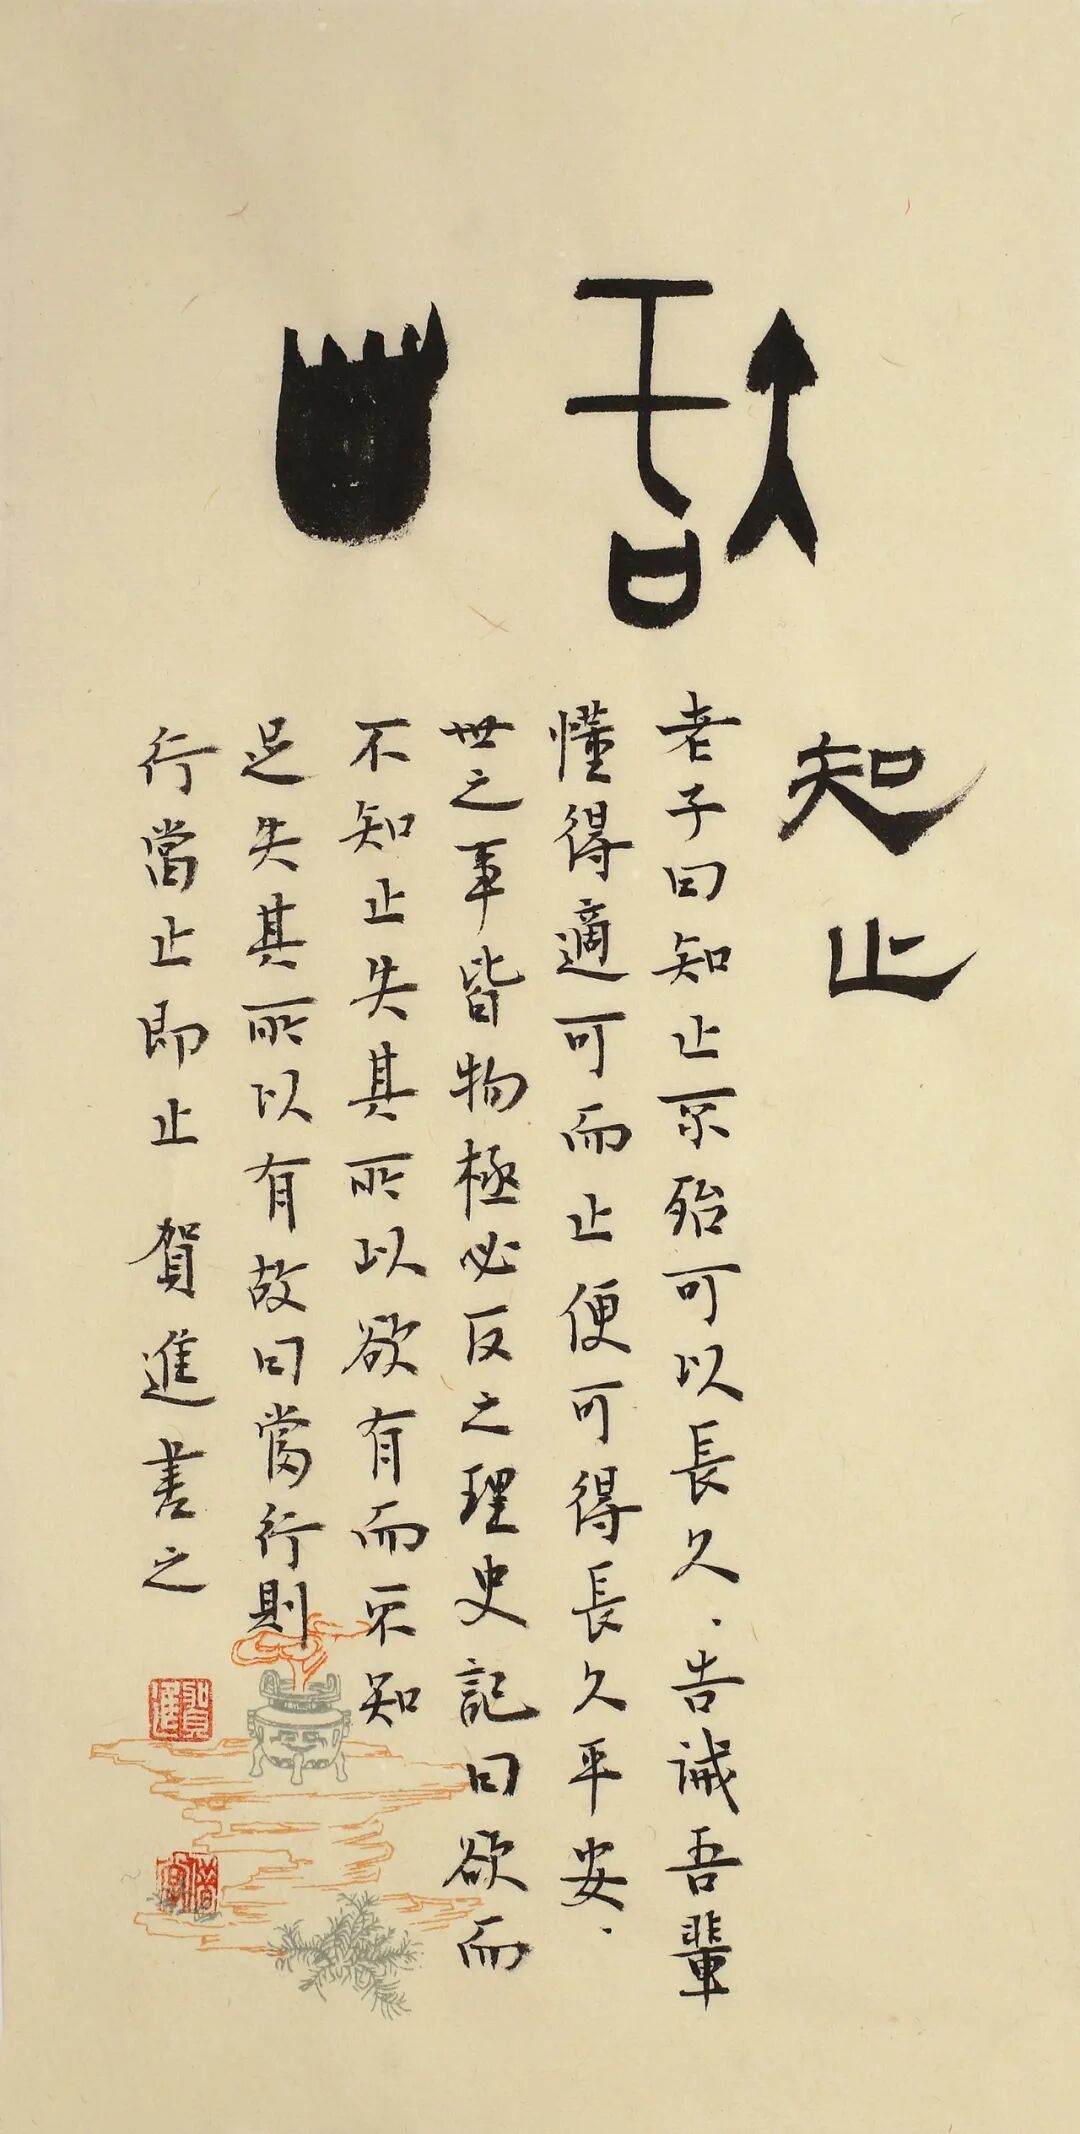 知止
知止
老子曰知止不殆可以長久、告誡吾輩
懂得適可而止便可得長久平安、
世之事皆物極必反之理史記曰欲而
不知止失其所以欲有而不知
足失其所以有故曰當行則
行當止即止 賀進書之
賀進